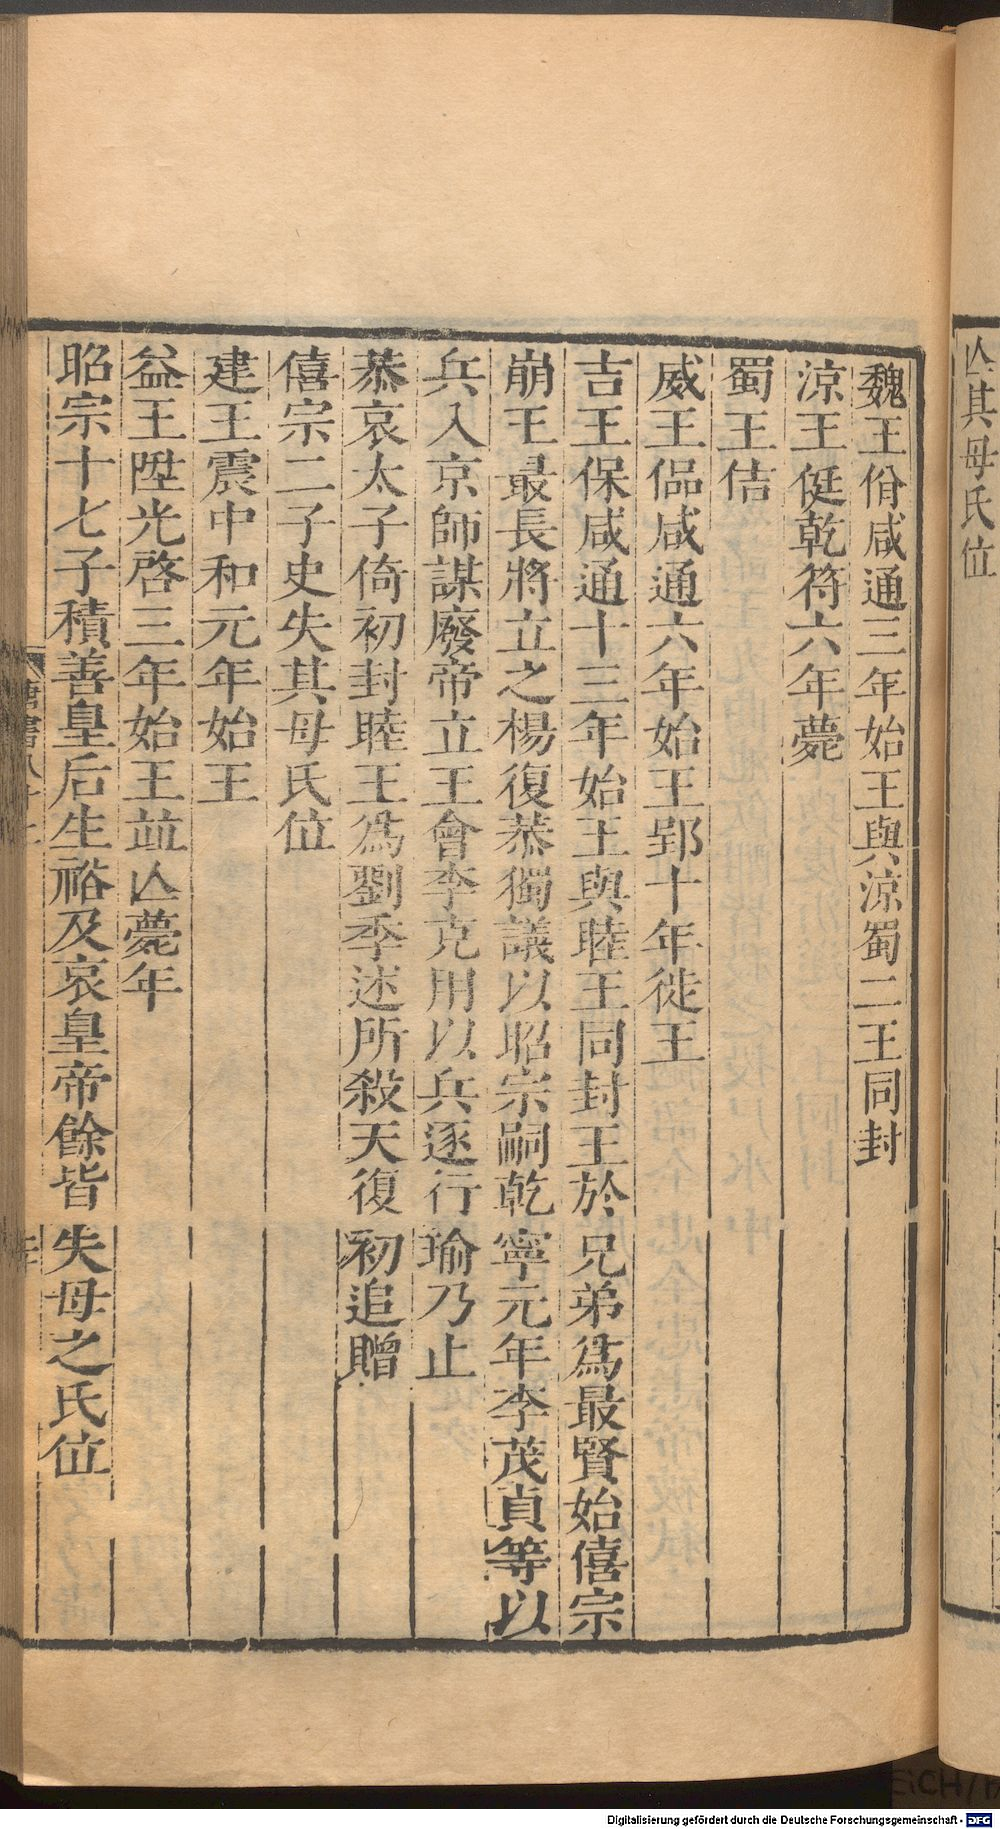 亾其母氏位
魏王佾咸通三年始王與涼蜀二王同封
涼王侹乾符六年薨
蜀王佶
威王偘咸通六年始王郢十年徙王
吉王保咸通十三年始王與睦王同封王於兄弟爲最賢始僖宗
崩王最長將立之楊復恭獨議以昭宗嗣乾寧元年李茂貞等以
兵入京師謀廢帝立王會李克用以兵逐行瑜乃止
恭哀太子倚初封睦王爲劉季述所殺天復初追贈
僖宗二子史失其母氏位
建王震中和元年始王
益王陞光啓三年始王並亾薨年
昭宗十七子積善皇后生𥙿及哀皇帝餘皆失母之氏位
唐書八十二
Digitalisierung gefördert durch die Deutsche Forschungsgemeinschaft - DFG